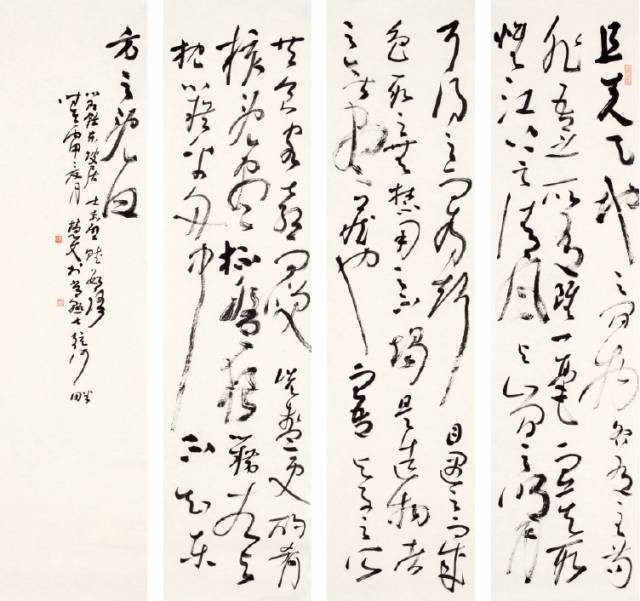 且夫天地之間物各有主苟
非吾之所有雖一毫而莫取
惟江上之清風與山間之明月
耳得之而為聲目遇之而成
色取之無禁用之不竭是造物者
之無盡藏也而吾與子之所
共食客喜而笑洗盞更酌肴
核既盡杯盤狼藉相與
枕藉乎舟中不知東
方之既白
東坡居士赤壁賦
丙申 月 畔